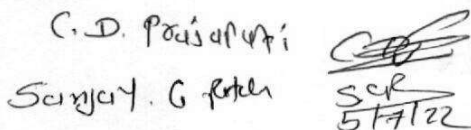 C. D. Prajapati
Sanjay. G Patel SCR
5/7/22